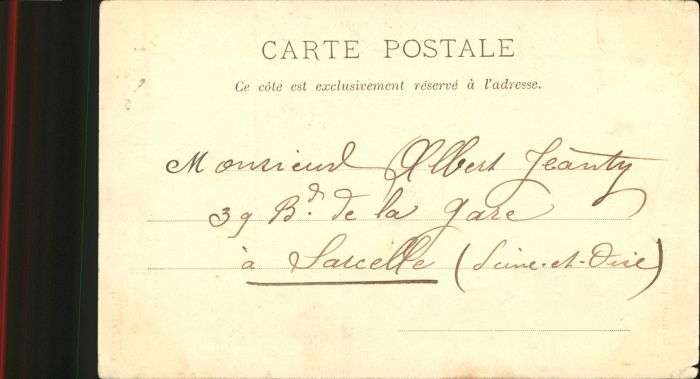 CARTE POSTALE
Ce côte est exclusivement réservé à l'adresse.
Monsieur Albert Jeanty
39 Bd. de la gare
à Sarcelle (Seine-et-Oise)